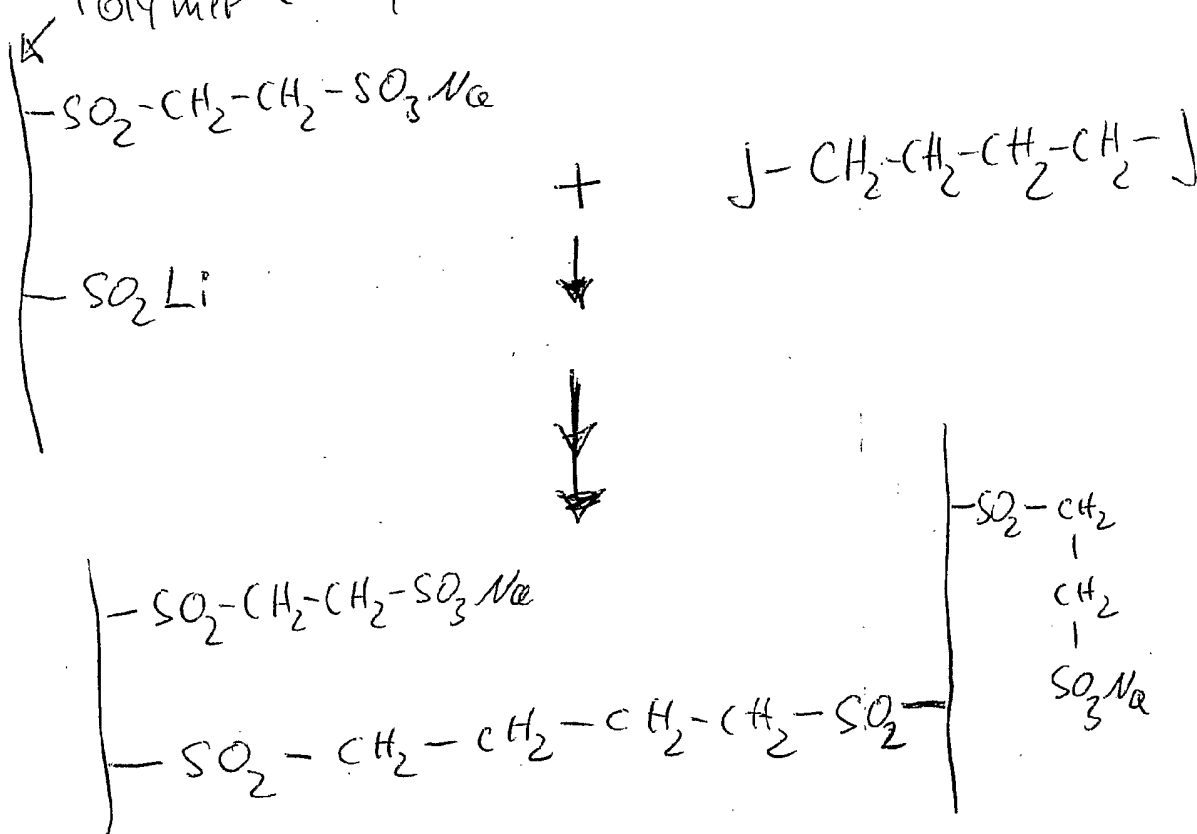 Polymer
-SO₂-CH₂-CH₂-SO₃Na
+
J-CH₂-CH₂-CH₂-CH₂-J
-SO₂Li
-SO₂-CH₂
CH₂
SO₃Na
-SO₂-CH₂-CH₂-SO₃Na
-SO₂-CH₂-CH₂-CH₂-CH₂-SO₂-